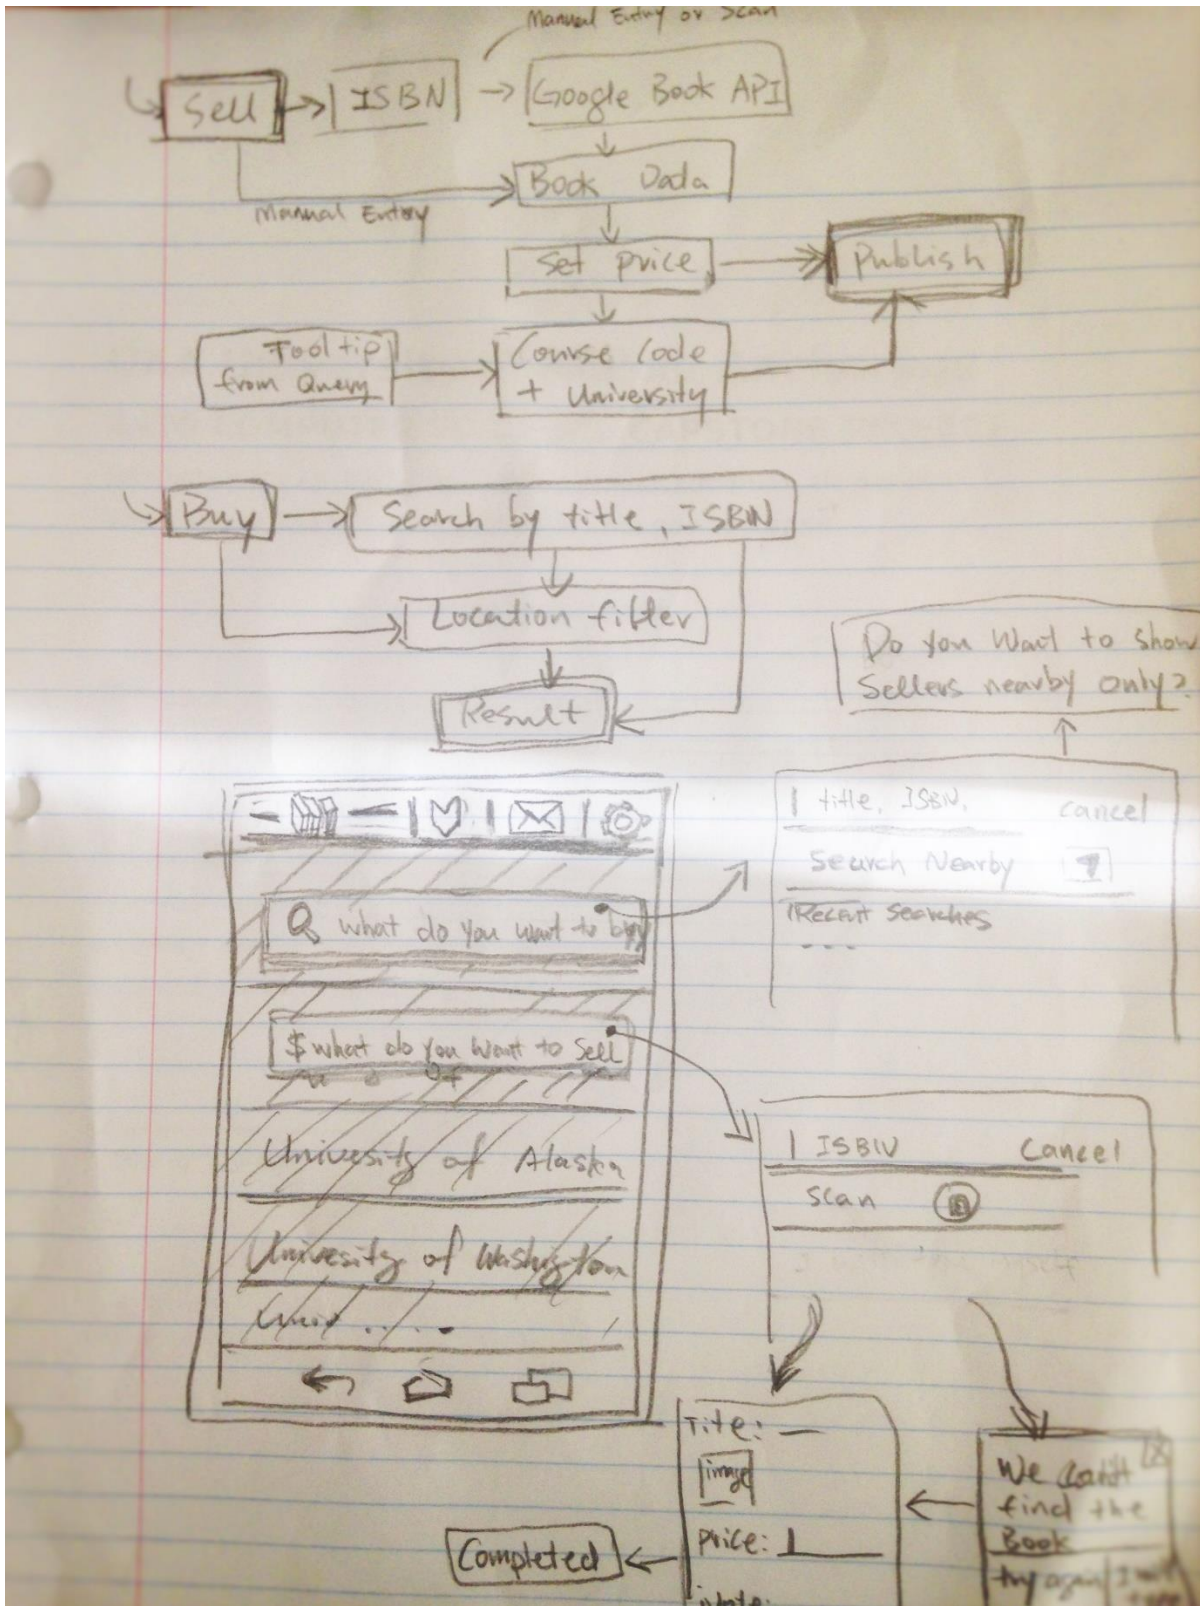 Manual Entry or Scan
Sell
ISBN
Google Book API
Book Data
Manual Entry
Set price
Publish
Tooltip
from Query
Course Code
+ University
Buy
Search by title, ISBN
Location filter
Result
Do you Want to show
Sellers nearby only?
title, ISBN,
cancel
Search Nearby
Recent Searches
...
what do you want to buy
$ what do you want to Sell
University of Alaska
University of Washington
Univ .....
ISBN
Cancel
Scan
Title:
image
price:
We can't
find the
Book
try again
Completed